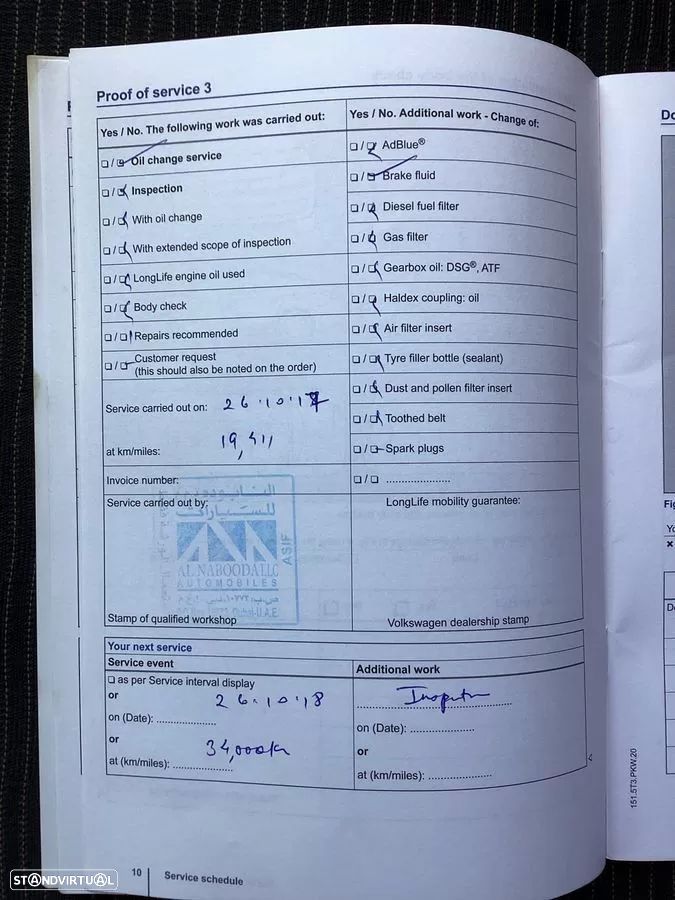 Proof of service 3
Yes / No. The following work was carried out:
Yes / No. Additional work - Change of:
/ Oil change service
/ Inspection
/ With oil change
/ With extended scope of inspection
/ LongLife engine oil used
/ Body check
/ Repairs recommended
/ Customer request
(this should also be noted on the order)
/ AdBlue®
/ Brake fluid
/ Diesel fuel filter
/ Gas filter
/ Gearbox oil: DSG®, ATF
/ Haldex coupling: oil
/ Air filter insert
/ Tyre filler bottle (sealant)
/ Dust and pollen filter insert
/ Toothed belt
/ Spark plugs
/ ......................
Service carried out on: 26.10.17
at km/miles: 19,411
Invoice number:
Service carried out by:
للسيارات
AL NABOODA LLC
AUTOMOBILES
ASIF
Stamp of qualified workshop
LongLife mobility guarantee:
Volkswagen dealership stamp
Your next service
Service event
as per Service interval display
or 26.10.18
on (Date): ....................
or 34,000km
at (km/miles): ....................
Additional work
on (Date): ......................
or
at (km/miles): ......................
10
Service schedule
151.5T3.PKW.20
Do
Fig
Yo
×
STANDVIRTUAL